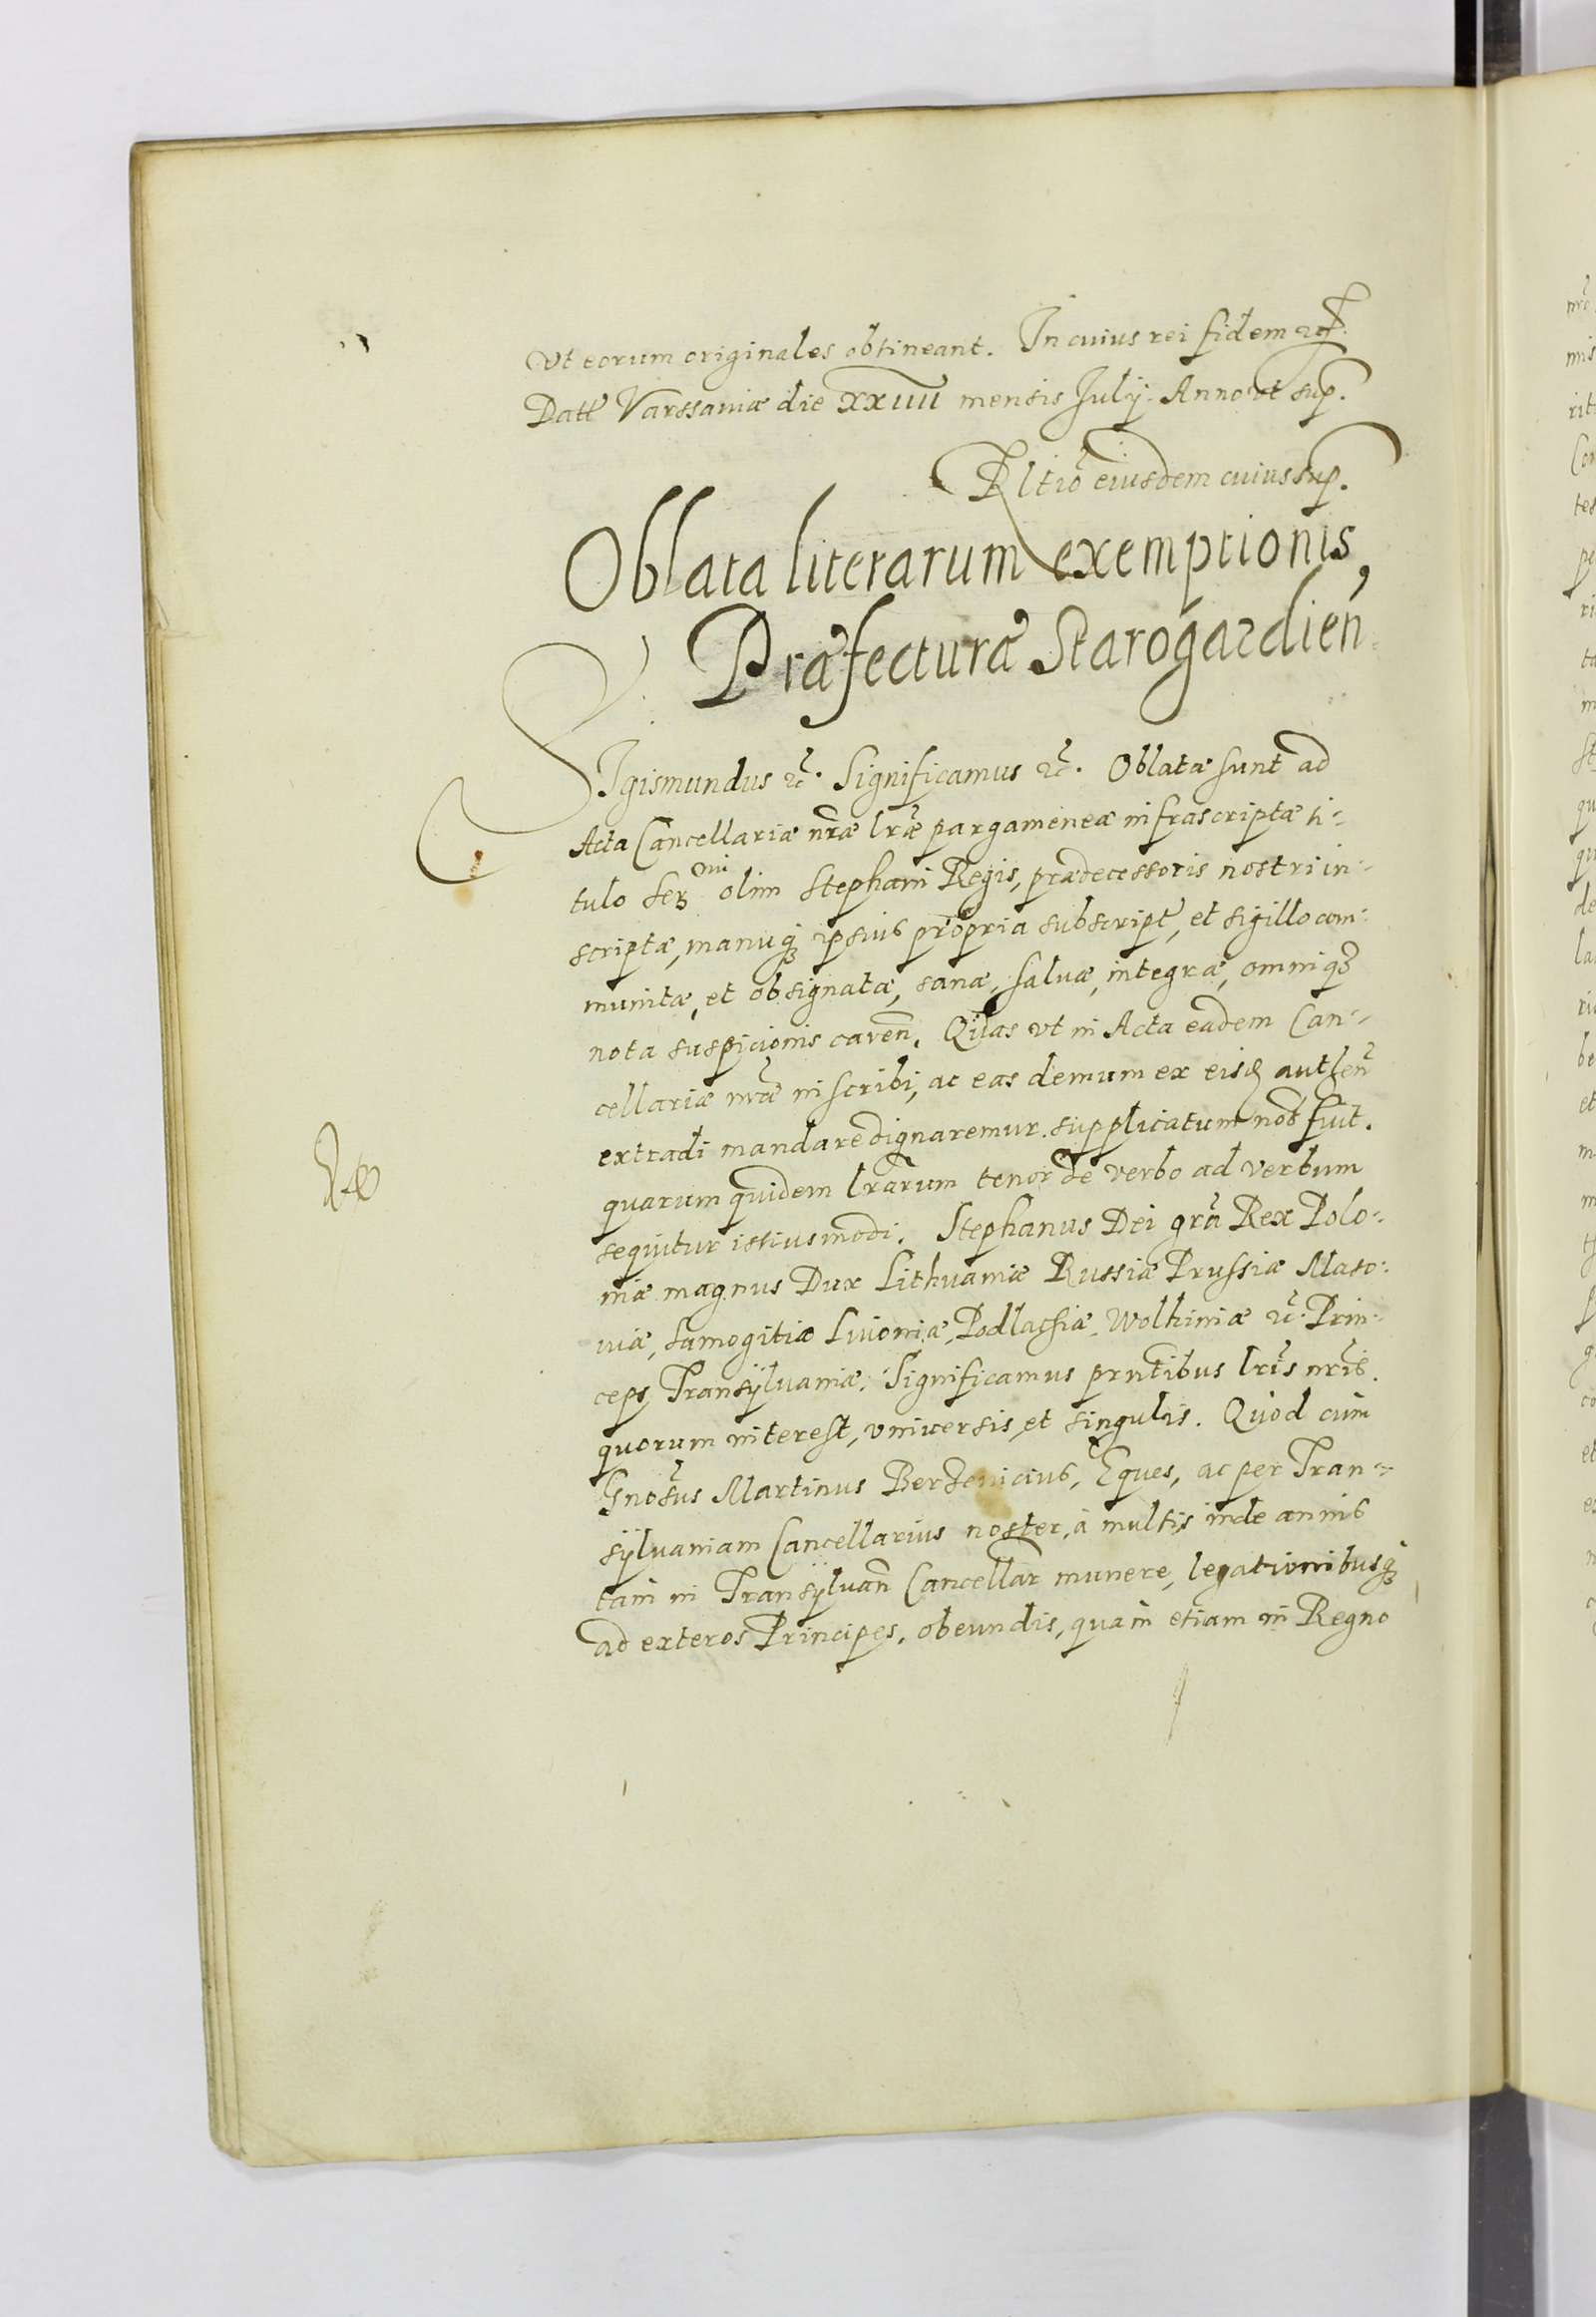 vt eorum originales obtineant. In cuius rei fidem ꝛc̃.
Datt̃ Varssauiæ die XXIIII mensis Julij. Anno vt sup̃.
Rltio᷉ eiusdem cuius sup̃.
Oblata literarum exemptionis,
Præfecturæ Starogardien̄.
SIgismundus ꝛc̃. Significamus ꝛc̃. Oblatæ sunt ad
Acta Cancellariæ nr̃æ lr̃æ pargameneæ infrascriptæ ti-
tulo Serᵐⁱ olim Stephani Regis, prædecessoris nostri in-
scriptæ, manuqꝫ ipsius propria subscript̃, et sigillo com-
munitæ, et obsignatæ, sanæ, saluæ, integræ, omniqꝫ
nota suspicionis caren̄. Quas vt in Acta eadem Can-
cellariæ nr̃æ inscribi, ac eas demum ex eisd authen̄
extradi mandare dignaremur. supplicatum nob̃ fuit.
quarum quidem lr̃arum tenor de verbo ad verbum
sequitur istiusmodi. Stephanus Dei gr̃a Rex Polo-
niæ magnus Dux Lithuaniæ Russiæ Prussiæ Maso-
uiæ, Samogitiæ Liuoniæ, Podlassiæ, Wolhiniæ ꝛc̃. Prin-
ceps Transijluaniæ. Significamus prntĩbus lr̃is nr̃is.
quorum interest, vniuersis, et singulis. Quod cùm
Gnos̃us Martinus Berzeuicius, Eques, ac per Tran-
sijluaniam Cancellarius noster, à multis inde annis
tam in Transijluan̄ Cancellar̃ munere, legationibusqꝫ
ad exteros Principes, obeundis, quàm etiam in Regno